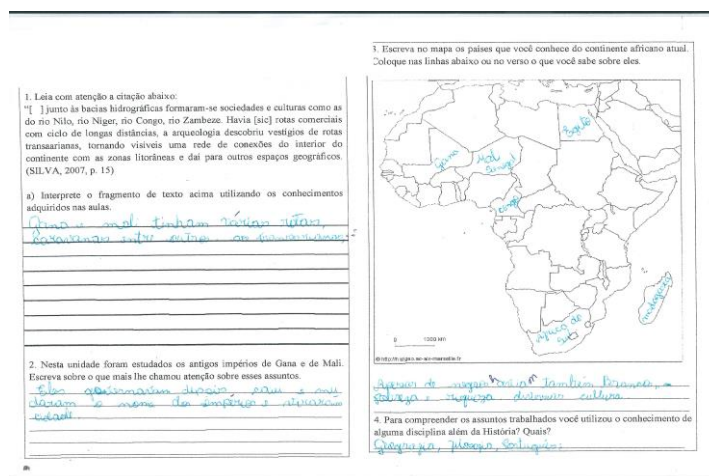 1. Leia com atenção a citação abaixo:
"[ ] junto às bacias hidrográficas formaram-se sociedades e culturas como as
do rio Nilo, rio Niger, rio Congo, rio Zambeze. Havia [sic] rotas comerciais
com ciclo de longas distâncias, a arqueologia descobriu vestígios de rotas
transaarianas, tornando visíveis uma rede de conexões do interior do
continente com as zonas litorâneas e daí para outros espaços geográficos.
(SILVA, 2007, p. 15)
a) Interprete o fragmento de texto acima utilizando os conhecimentos
adquiridos nas aulas.
Gana e mali tinham várias rotas,
caravanas entre outros as
2. Nesta unidade foram estudados os antigos impérios de Gana e de Mali.
Escreva sobre o que mais lhe chamou atenção sobre esses assuntos.
Eles governaram depois caiu e mu
daram o nome dos impérios e viraram
cidade.
3. Escreva no mapa os países que você conhece do continente africano atual.
Coloque nas linhas abaixo ou no verso o que você sabe sobre eles.
Egito
Gana
Mali
Senegal
Congo
madagascar
África do
Sul
0 1000 km
Apesar de negros haviam também brancos,
pobreza e riqueza diversas cultura
4. Para compreender os assuntos trabalhados você utilizou o conhecimento de
alguma disciplina além da História? Quais?
Geografia, filosofia, Português;